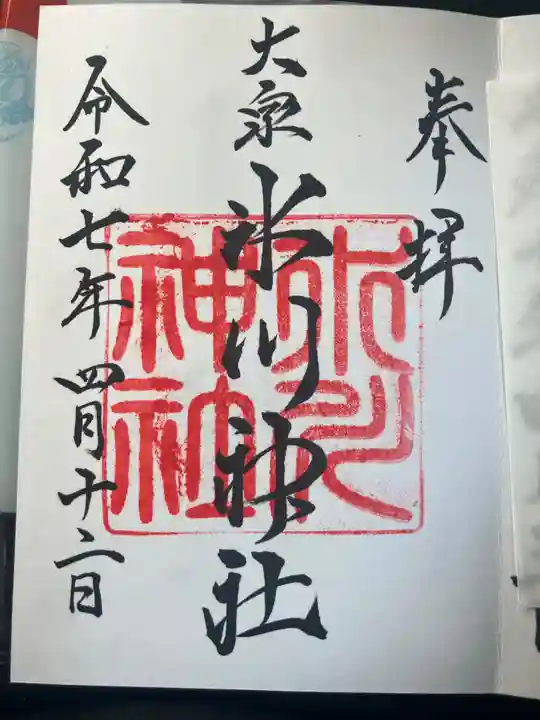 奉拝
大泉
氷川神社
令和七年四月十二日
氷川
神社